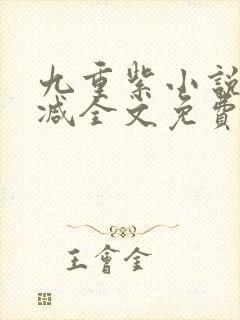 九重紫小說
减全文免費
王會全